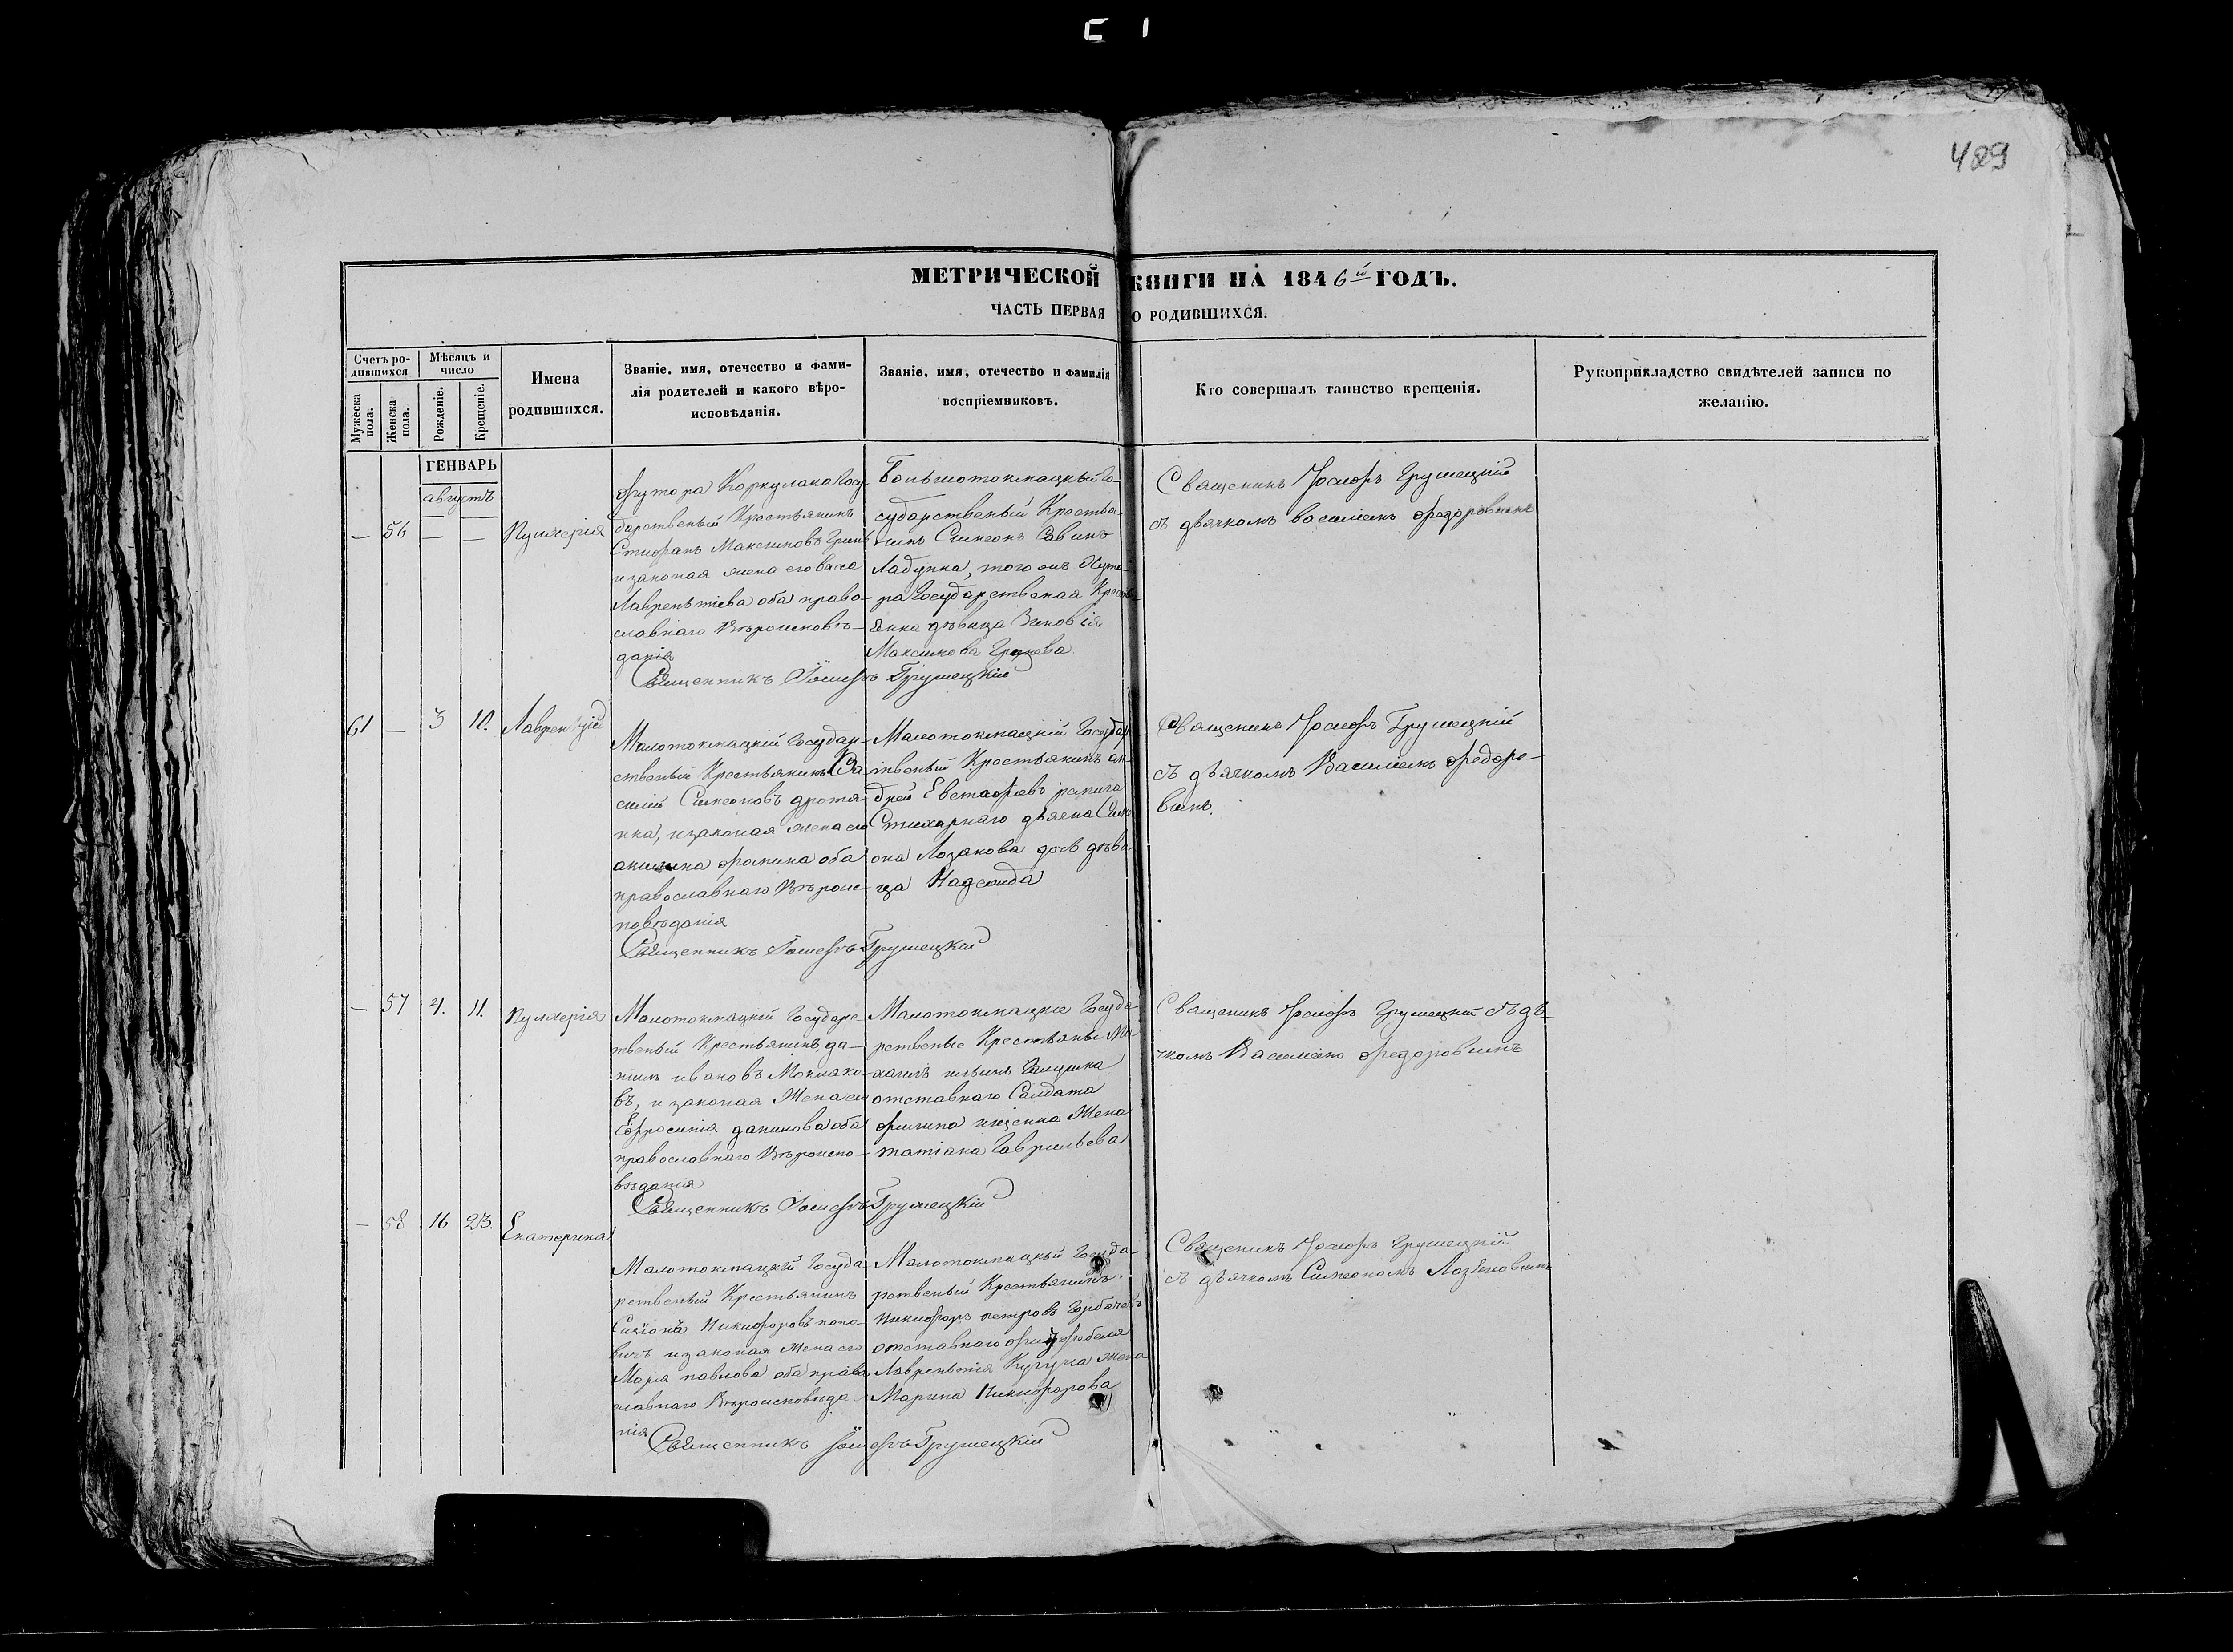 489
МЕТРИЧЕСКОЙ КНИГИ НА 1846й ГОДЪ.
ЧАСТЬ ПЕРВАЯ О РОДИВШИХСЯ.
Счетъ ро-
дившихся
Мужеска
пола.
Женска
пола.
Мѣсяцъ и
число
Рожденіе.
Крещеніе.
Имена
родившихся.
Званіе, имя, отечество и фами-
лія родителей и какого вѣро-
исповѣданія.
Званіе, имя, отечество и фамилія
воспріемниковъ.
Кто совершалъ таинство крещенія.
Рукоприкладство свидѣтелей записи по
желанію.
ГЕНВАРЬ
августъ
— 56 — —
Пулхерія
Футора Коркулака Госу-
дарственый Крестьянинъ
Стифанъ Максимовъ
изаконая жена его васа
Лаврентіева оба право-
славнаго Вѣроисповѣ-
данія
Большотокмацкый Го-
сударственый Крестья-
нинъ Симеонъ Савинъ
Ладунка, того жъ Хуто-
ра Государственая Кресть-
янка дѣвица Зиновія
Максимова
Священикъ Іосифъ Грушецкій
съ дьячкомъ василіемъ федоровымъ
Священникъ Іосифъ Грушецкій
61 — 3 10.
Лаврентій
Малотокмацкій Государ-
ственый Крестьянинъ Ва-
силій Симеоновъ дротя-
нка, изаконая жена его
акилина фомина оба
православнаго Вѣроис-
повѣданія
Малотокмацкій Государ-
ственый Крестьянинъ ан-
дрей Евстафіевъ репига
Стихарнаго дьячка Симе-
она Лозанова дочь дѣви-
ца Надежда
Священикъ Іосифъ Грушецкій
съ дьячкомъ Василіемъ федоро-
вымъ.
Священникъ Іосифъ Грушецкій
— 57 4. 11.
Пулхерія
Малотокмацкій Государс-
твеный Крестьянинъ да-
нилъ ивановъ Моклако-
въ, и законая Жена его
Ефросинія данилова оба
православнаго Вѣроиспо-
вѣданія
Малотокмацкіе Госуда-
рственые Крестьяны Ми-
хаилъ ильинъ Галушка
отставнаго Салдата
филипа ищенка Жена
татіана Гаврильева
Священикъ Іосифъ Грушецкій съ дья-
чкомъ Василіемъ федоровымъ
Священникъ Іосифъ Грушецкій
— 58 16 23.
Екатерина
Малотокмацкій Госуда-
рственый Крестьянинъ
Симіонъ Никифоровъ попо-
вичъ изаконая Жена его
Марія павлова оба право-
славнаго Вѣроисповѣда-
нія
Малотокмацкый Госуда-
рственый Крестьянинъ
Никифоръ петровъ Горбачевъ
отставнаго фитфебеля
Лаврентія Кучука Жена
Марина Никифорова
Священикъ Іосифъ Грушецкій
съ дьячкомъ Симеономъ Лозановымъ
Священникъ Іосифъ Грушецкій